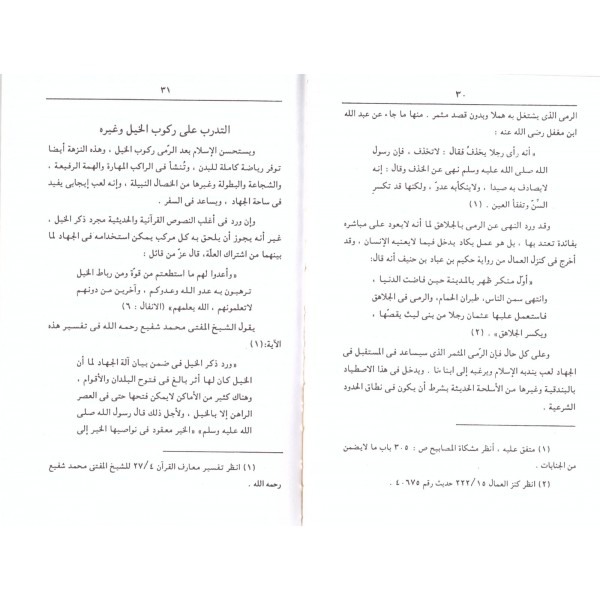 ٣٠
الرمى الذى يشتغل به هملا وبدون قصد مثمر . منها ما جاء عن عبد الله
ابن مغفل رضى الله عنه :
« أنه رأى رجلا يخذف فقال : لاتخذف ، فإن رسول
الله صلى الله عليه وسلم نهى عن الخذف وقال : إنه
لايصادف به صيدا ، ولاينكأبه عدو ، ولكنها قد تكسر
السنّ وتفقأ العين . (١)
وقد ورد النهى عن الرمى بالجلاهق لما أنه لايعود على مباشره
بفائدة تعتد بها ، بل هو عمل يكاد يدخل فيما لايعنيه الإنسان ، وقد
أخرج فى كنزل العمال من رواية حكيم بن عباد بن حنيف أنه قال:
« أول منكر ظهر بالمدينة حين فاضت الدنيا ،
وانتهى سمن الناس، طيران الحمام، والرمى فى الجلاهق
فاستعمل عليها عثمان رجلا من بنى ليث يقصّها ،
ويكسر الجلاهق » . (٢)
وعلى كل حال فإن الرّمى المثمر الذى سيساعد فى المستقبل فى
الجهاد لعب يندبه الإسلام ويرغبه إلى ابنا ئنا . ويدخل فى هذا الاصطياد
بالبندقية وغيرها من الأسلحة الحديثة بشرط أن يكون فى نطاق الحدود
الشرعية .
(١) متفق عليه ، أنظر مشكاة المصابيح ص : ٣٠٥ باب ما لايضمن
من الجنايات .
(٢) انظر كنز العمال ٢٢٢/١٥ حديث رقم ٤٠٦٧٥ .
٣١
التدرب على ركوب الخيل وغيره
ويستحسن الإسلام بعد الرّمى ركوب الخيل ، وهذه النزهة أيضا
توفر رياضة كاملة للبدن ، وتُنشأ فى الراكب المهارة والهمة الرفيعة ،
والشجاعة والبطولة وغيرها من الخصال النبيلة ، وإنه لعب إيجابى يفيد
فى ساحة الجهاد ، ويساعد فى السفر .
وإن ورد فى أغلب النصوص القرآنية والحديثية مجرد ذكر الخيل ،
غير أنه يجوز أن يلحق به كل مركب يمكن استخدامه فى الجهاد لما
بينهما من اشتراك العلّة، قال عزّ من قائل :
« وأعدوا لهم ما استطعتم من قوّة ومن رباط الخيل
ترهبون به عدو الله وعدوكم ، وآخرين من دونهم
لاتعلمونهم ، الله يعلمهم» (الانفال : ٦)
يقول الشيخ المفتى محمد شفيع رحمه الله فى تفسير هذه
الآية:(١)
« ورد ذكر الخيل فى ضمن بيان آلة الجهاد لما أن
الخيل كان لها أثر بالغ فى فتوح البلدان والأقوام ،
وهناك كثير من الأماكن لايمكن فتحها حتى فى العصر
الراهن إلا بالخيل ، ولأجل ذلك قال رسول الله صلى
الله عليه وسلم» «الخير معقود فى نواصيها الخير إلى
(١) انظر تفسير معارف القرآن ٢٧/٤ للشيخ المفتى محمد شفيع
رحمه الله .